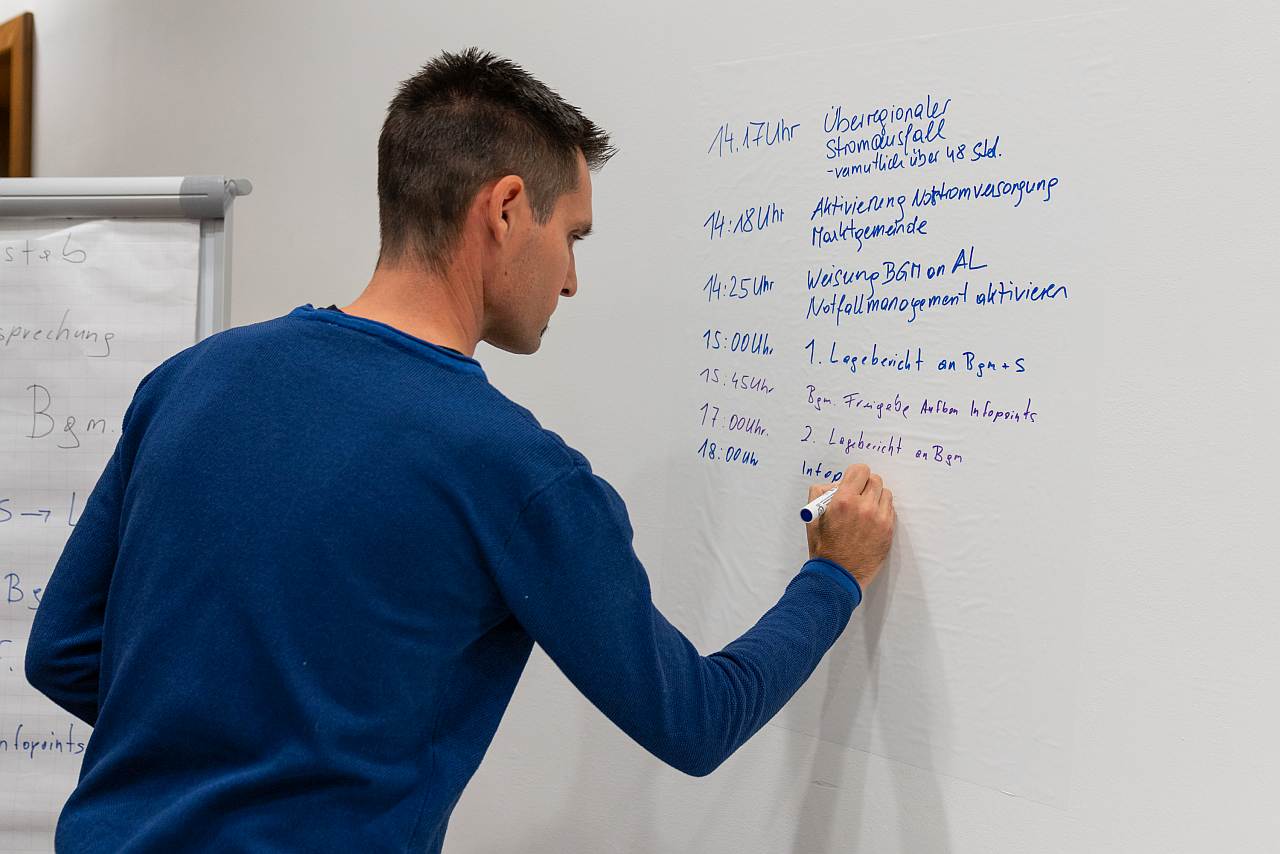 steb
sprechung
Bgm.
S → L
Bg
F.
nfopoints
14.17Uhr Überregionaler
Stromausfall
-vamutlich über 48 Std.
14:18Uhr Aktivierung Notstromversorgung
Marktgemeinde
14:25Uhr Weisung BGM an AL
Notfallmanagement aktivieren
15:00Uhr 1. Lagebericht an Bgm + S
15:45Uhr Bgm. Freigabe Aufbau Infopoints
17:00Uhr. 2. Lagebericht an Bgm
18:00Uhr Infop